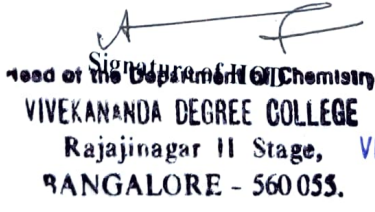 Signature of HOD
Head of the Department of Chemistry
VIVEKANANDA DEGREE COLLEGE
Rajajinagar II Stage,
BANGALORE - 560 055.